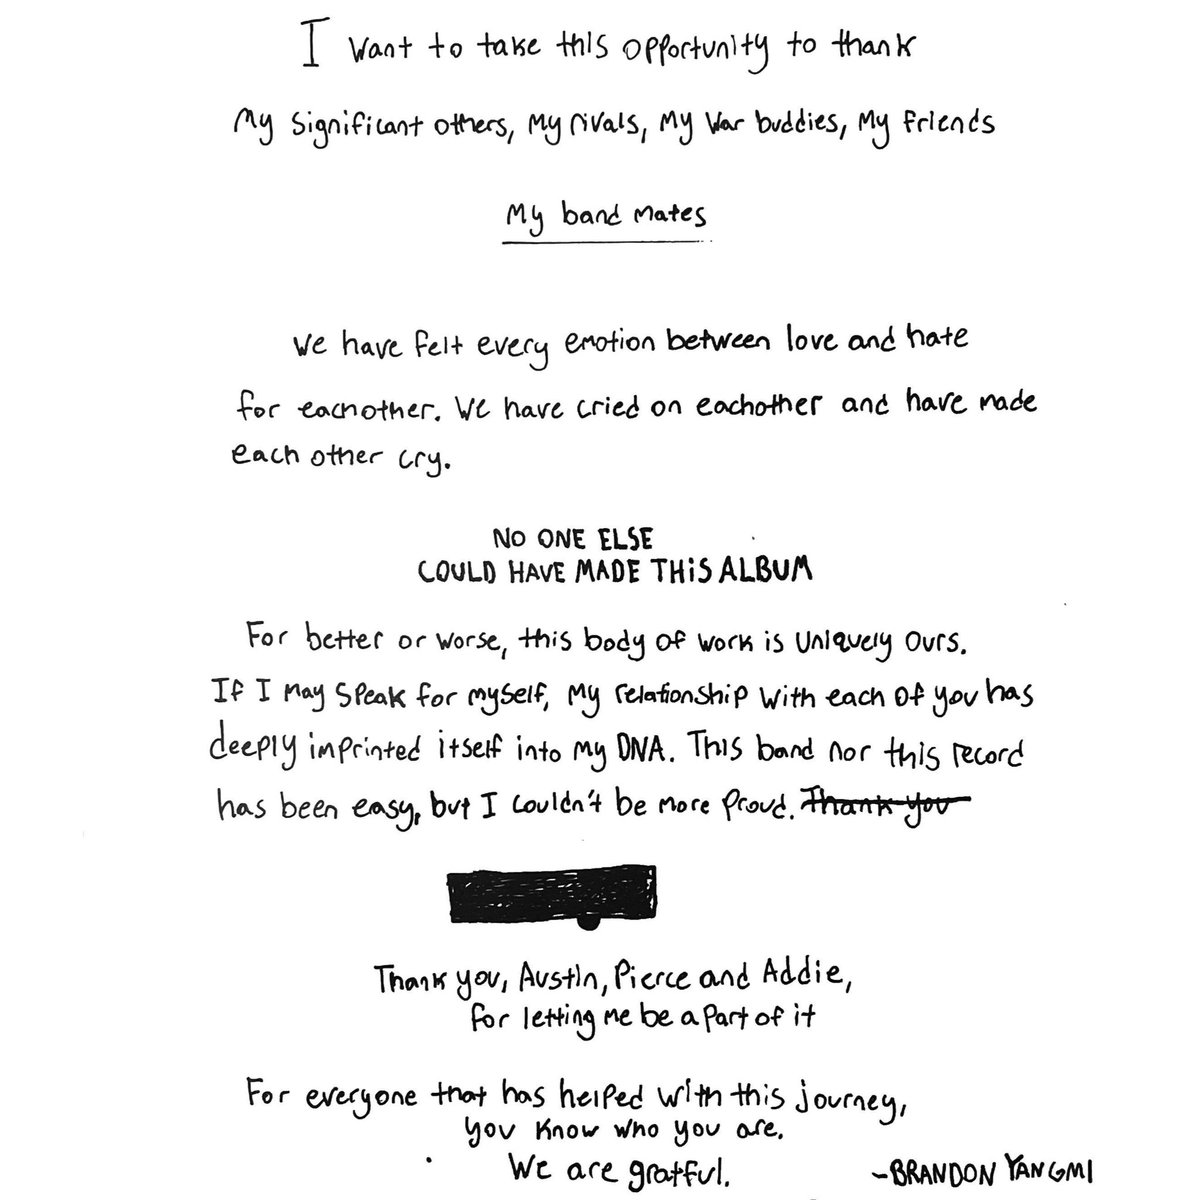 I want to take this opportunity to thank
My significant others, My rivals, My war buddies, My friends
My band mates
We have felt every emotion between love and hate
for eachother. We have cried on eachother and have made
each other cry.
NO ONE ELSE
COULD HAVE MADE THiS ALBUM
For better or worse, this body of work is uniquely ours.
If I may speak for myself, My relationship with each of you has
deeply imprinted itself into my DNA. This band nor this record
has been easy, but I couldn't be more proud. Thank you
Thank you, Austin, Pierce and Addie,
for letting me be a part of it
For everyone that has helped with this journey,
you know who you are.
We are gratful.
~BRANDON YANGMI